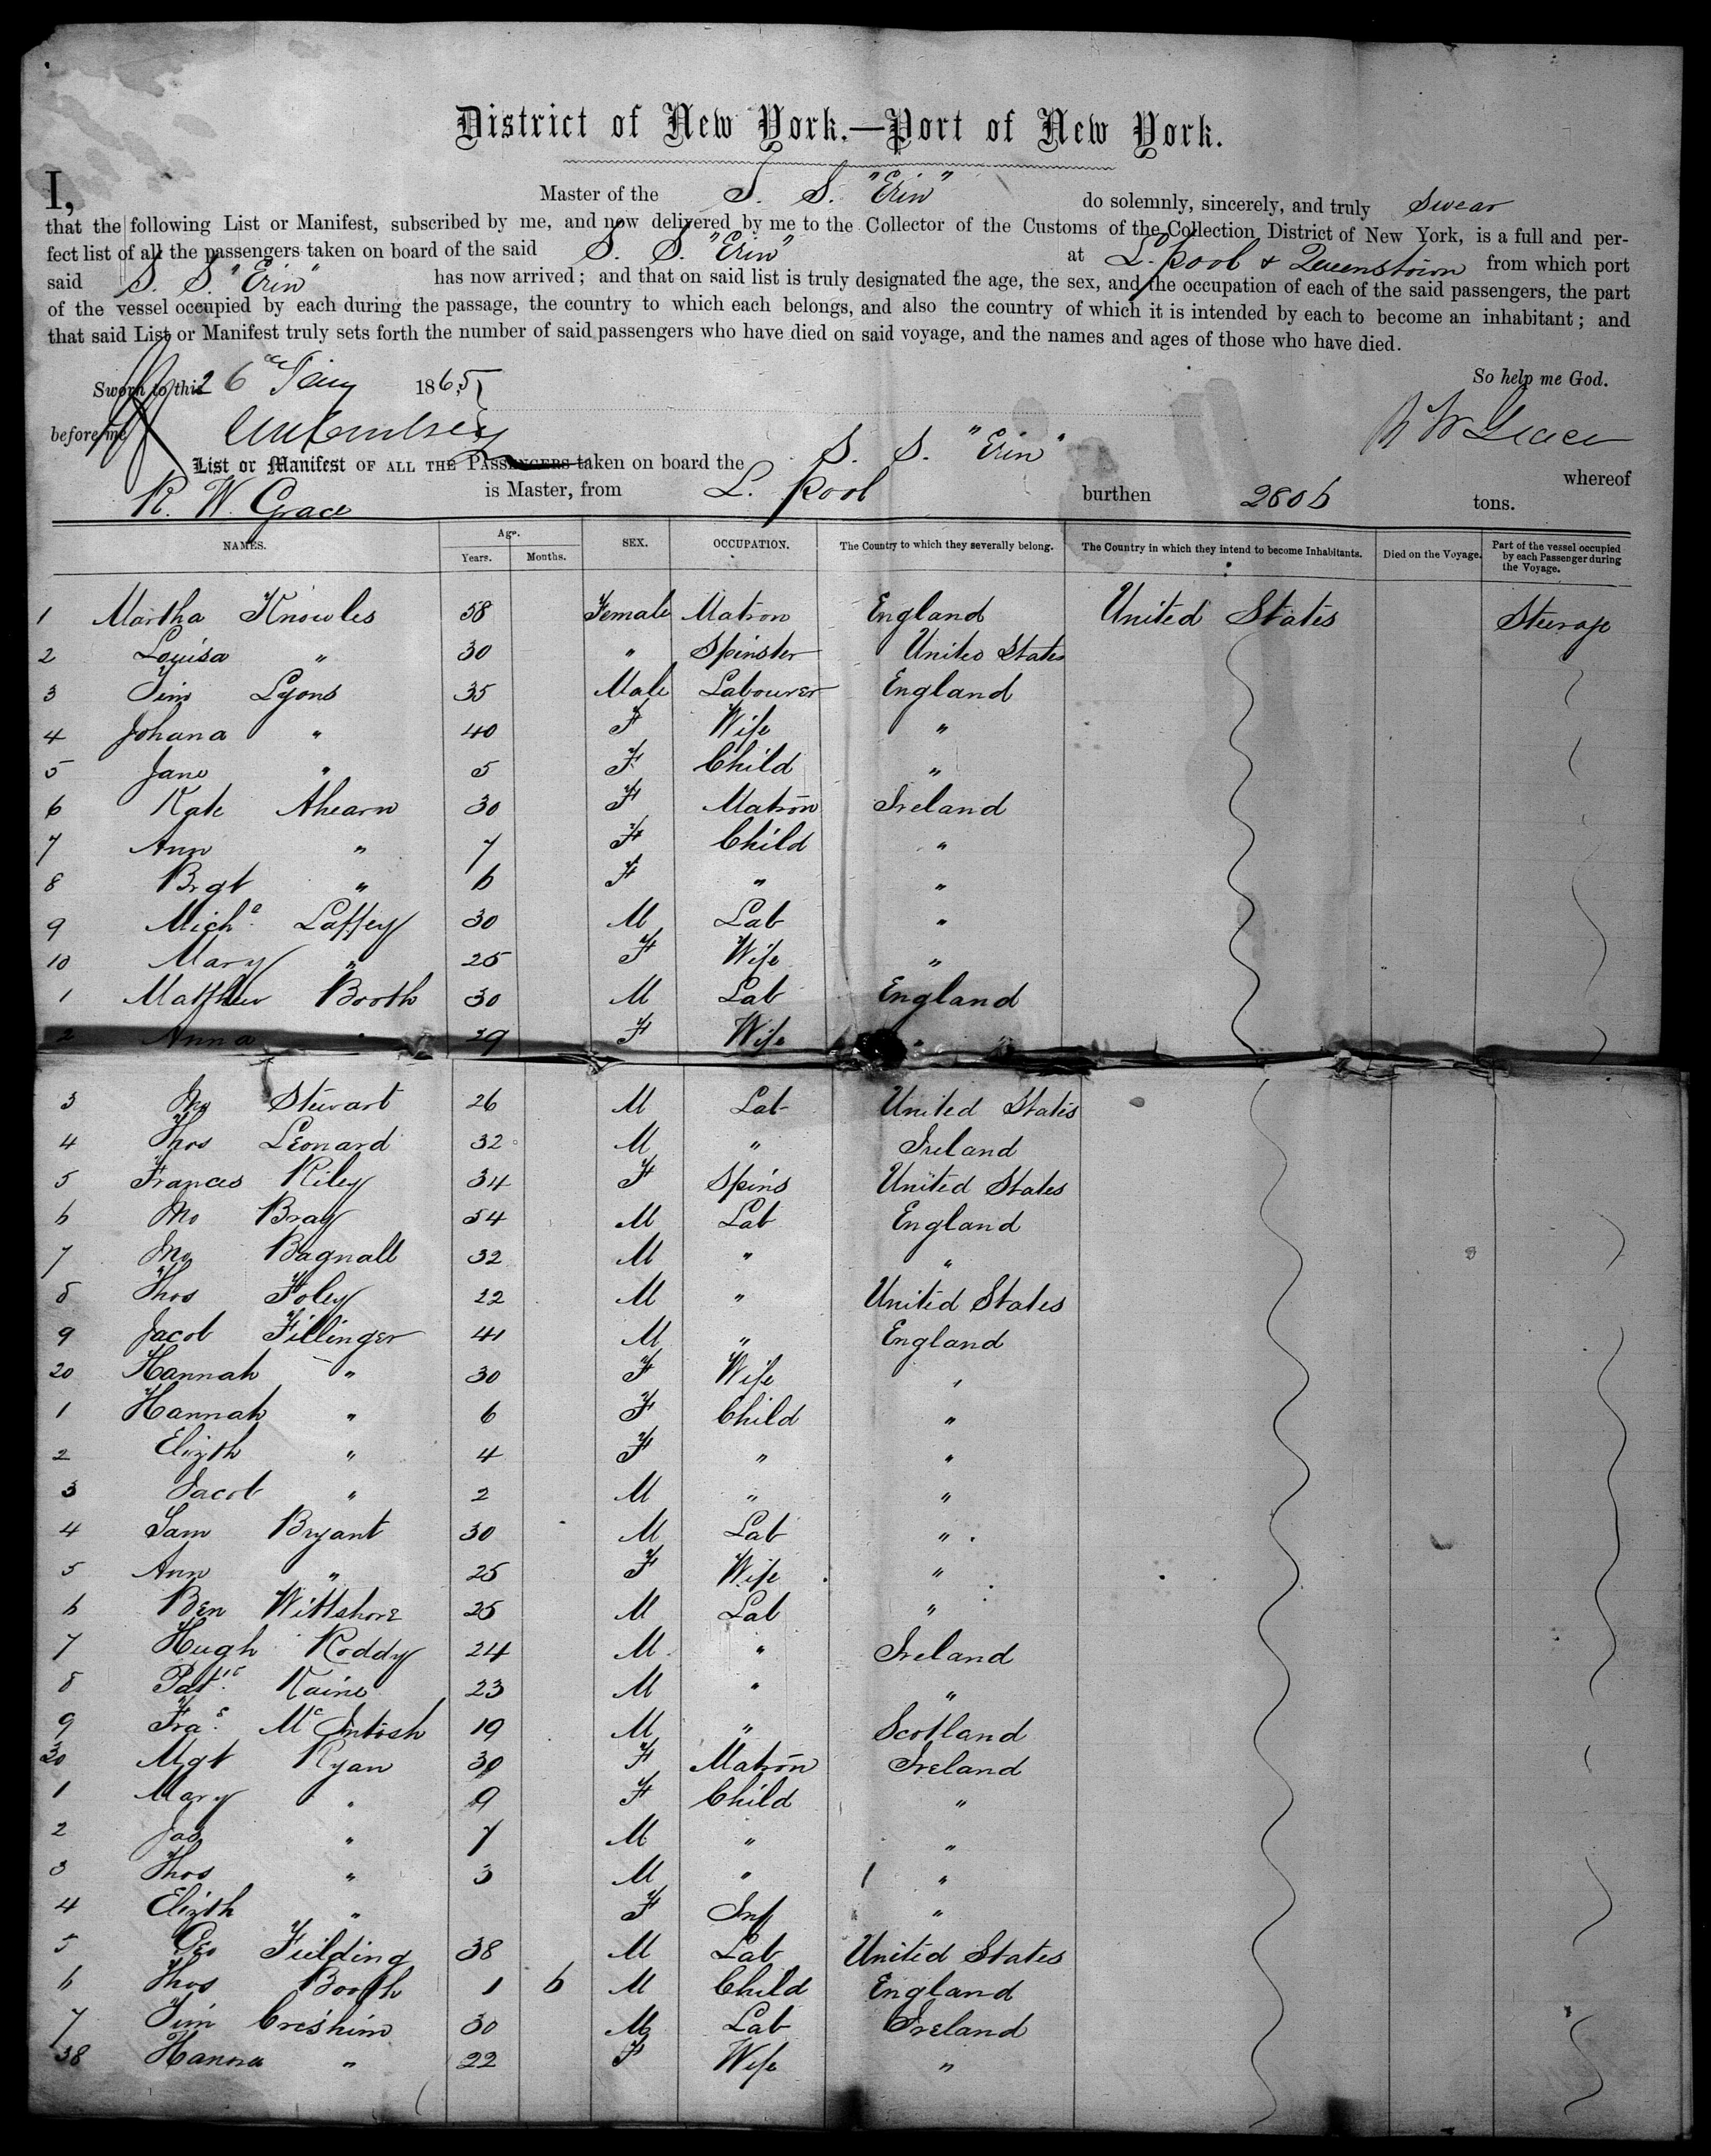 District of New York.—Port of New York.
I, Master of the S. S. "Erin" do solemnly, sincerely, and truly swear
that the following List or Manifest, subscribed by me, and now delivered by me to the Collector of the Customs of the Collection District of New York, is a full and per-
fect list of all the passengers taken on board of the said S. S. "Erin" at L. pool & Queenstown from which port
said S. S. "Erin" has now arrived; and that on said list is truly designated the age, the sex, and the occupation of each of the said passengers, the part
of the vessel occupied by each during the passage, the country to which each belongs, and also the country of which it is intended by each to become an inhabitant; and
that said List or Manifest truly sets forth the number of said passengers who have died on said voyage, and the names and ages of those who have died.
Sworn to this 26 1865 So help me God.
before me R W Grace
List or Manifest OF ALL THE PASSENGERS taken on board the S. S. "Erin" whereof
R. W. Grace is Master, from L. pool burthen 2806 tons.
NAMES. Age. Years. Months. SEX. OCCUPATION. The Country to which they severally belong. The Country in which they intend to become Inhabitants. Died on the Voyage. Part of the vessel occupied by each Passenger during the Voyage.
1 Martha Knowles 58 Female Matron England United States Steerage
2 Louisa " 30 " Spinster United States
3 Tim Lyons 35 Male Labourer England
4 Johana " 40 F Wife "
5 Jane " 5 F Child "
6 Kate Ahearn 30 F Matron Ireland
7 Ann " 7 F Child "
8 Brgt " 6 F " "
9 Michl. Laffey 30 M Lab "
10 Mary " 25 F Wife "
1 Matthew Booth 30 M Lab England
2 Anna " 29 F Wife "
3 Jno Stewart 26 M Lab United States
4 Thos Leonard 32 M " Ireland
5 Frances Riley 34 F Spins United States
6 Jno Bray 54 M Lab England
7 Jno Bagnall 32 M " "
8 Thos Foley 22 M " United States
9 Jacob Fillinger 41 M " England
20 Hannah " 30 F Wife "
1 Hannah " 6 F Child "
2 Elizth " 4 F " "
3 Jacob " 2 M " "
4 Sam Bryant 30 M Lab "
5 Ann " 25 F Wife "
6 Ben Wittshore 25 M Lab "
7 Hugh Roddy 24 M " Ireland
8 Patk. Kaine 23 M " "
9 Fras. McIntosh 19 M " Scotland
30 Mgt Ryan 30 F Matron Ireland
1 Mary " 9 F Child "
2 Jas " 7 M " "
3 Thos " 3 M " "
4 Elizth " F Inf "
5 Geo Feilding 38 M Lab United States
6 Thos Booth 1 6 M Child England
7 Tim 30 M Lab Ireland
38 Hanna " 22 F Wife "